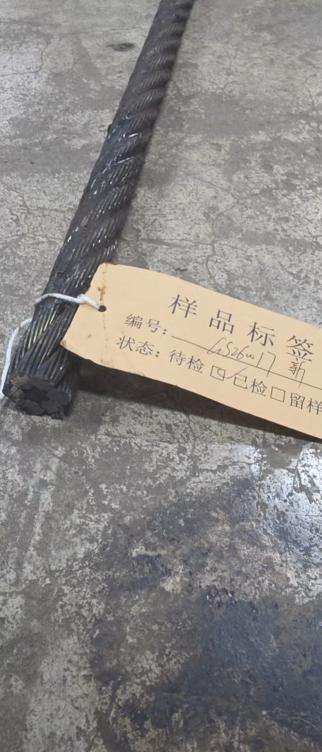 样品标签
编号: GS26w17 新
状态: 待检 ☑ 已检 □ 留样